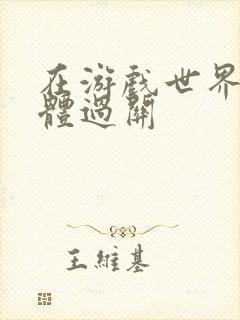 在游戲世界
體過關
王維基